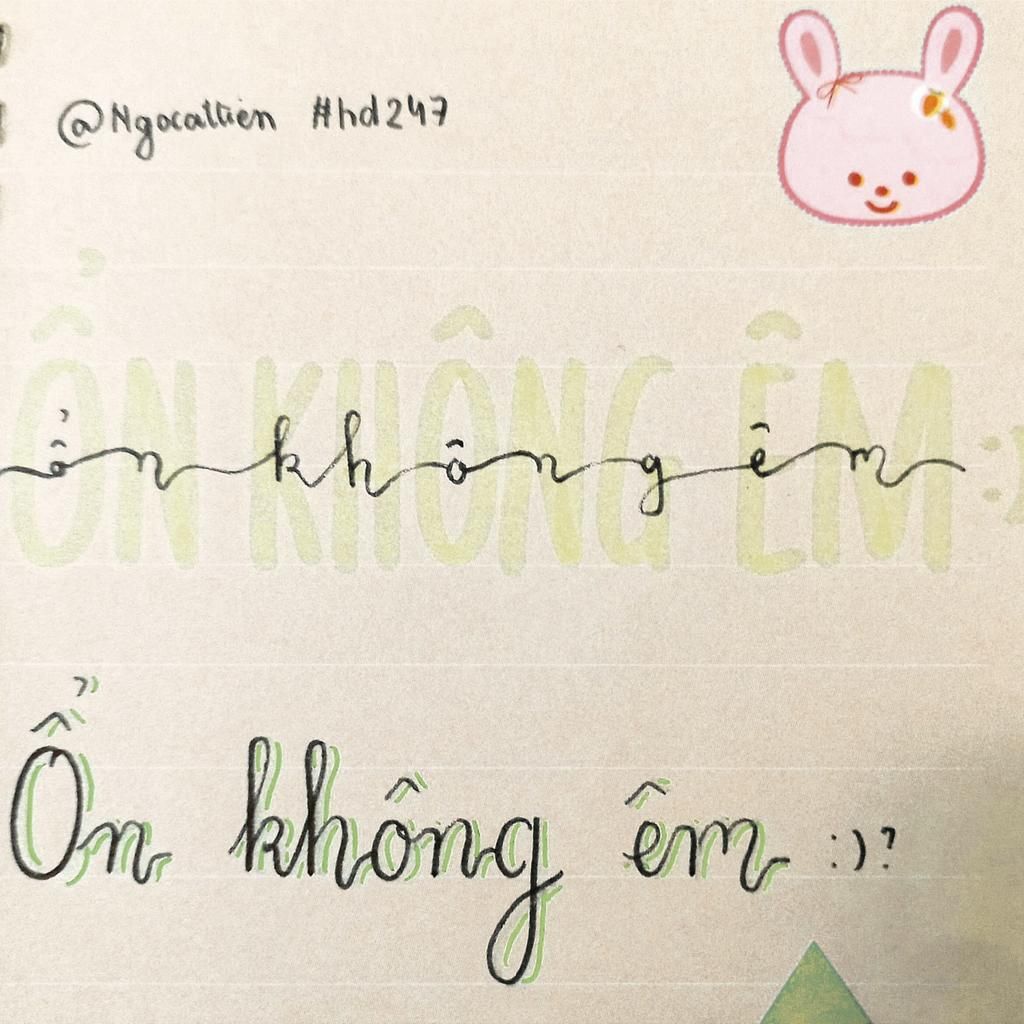 @Ngocattien #hd247
ỔN KHÔNG ÊM :)
ổn không êm
Ổn không êm :)?